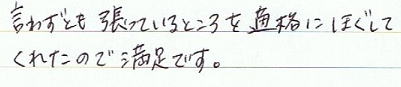 言わずとも張っているところを適格にほぐして
くれたので満足です。